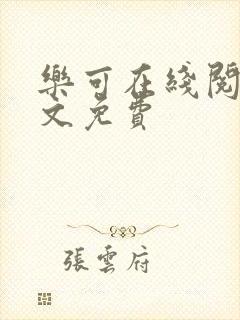 樂可在綫閱
文免費
張雲府